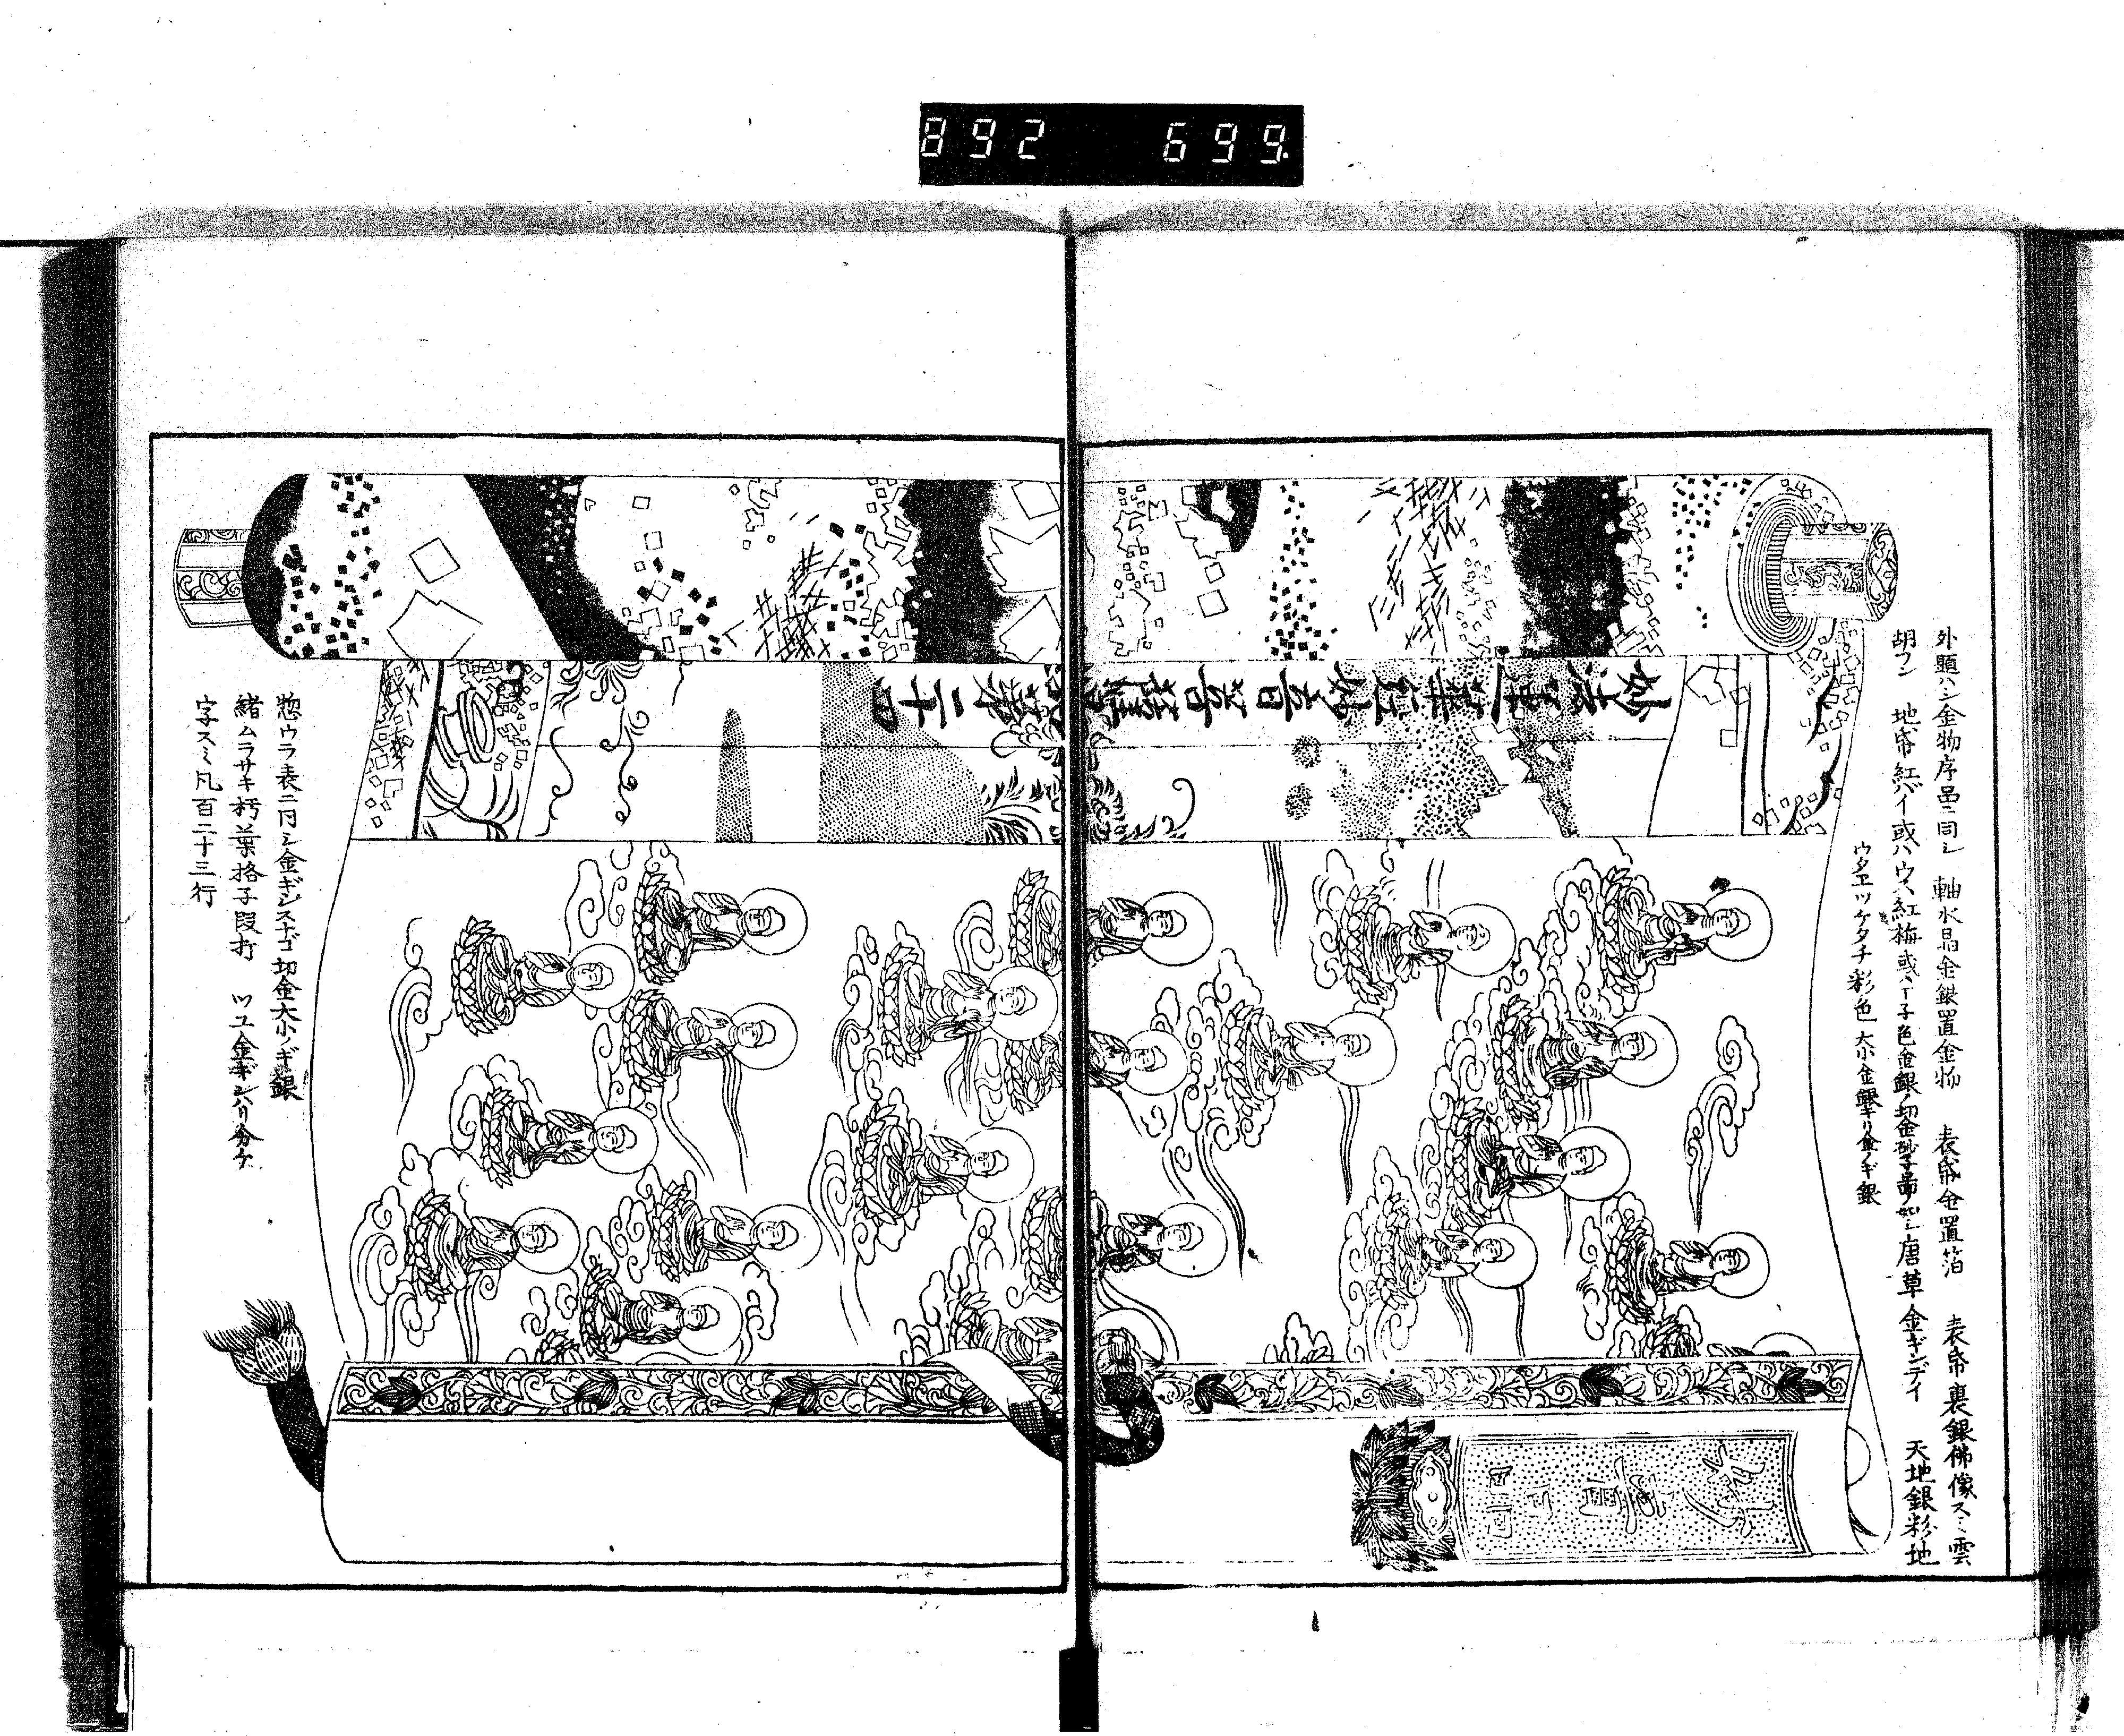 892 699.
外題ハシ金物序品ニ同シ 軸水晶金銀置金物 表帋金置箔 表帋裏銀佛像スミ雲
胡フン 地帋紅バイ或ハウス紅梅或ハ丁子色金銀ノ切金砂子圖ノ如シ唐草金ギンデイ 天地銀彩地
ウタヱツケタチ彩色 大小金銀キリ金ノギ銀
妙法蓮華経妙音菩薩
品第二十四
惣ウラ表ニ同シ金ギンスナゴ切金大小ノギ銀
緒ムラサキ朽葉格子段打 ツユ金ギンハリ分ケ
字スミ凡百二十三行